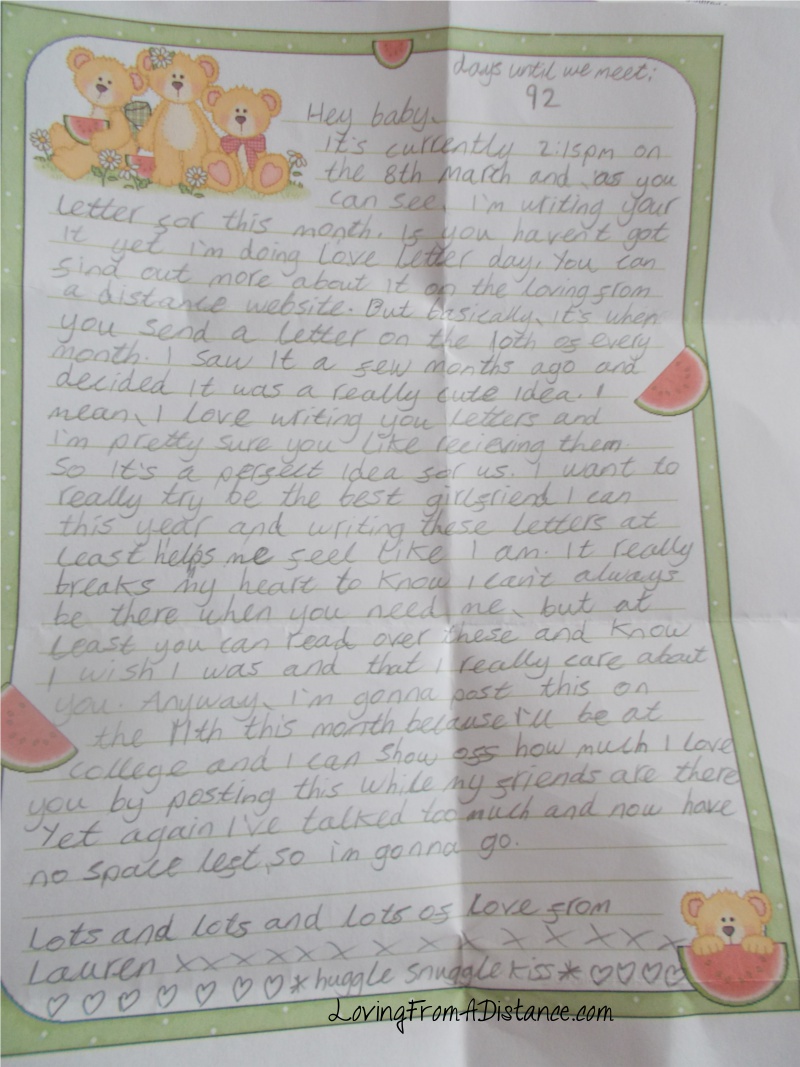 days until we meet:
92
Hey baby,
It's currently 2:15pm on
the 8th March and, as you
can see, I'm writing your
letter for this month. If you haven't got
it yet I'm doing Love Letter day. You can
find out more about it on the loving from
a distance website. But basically, it's when
you send a letter on the 10th of every
month. I saw it a few months ago and
decided it was a really cute idea. I
mean, I love writing you letters and
I'm pretty sure you like recieving them.
So it's a perfect idea for us. I want to
really try be the best girlfriend I can
this year and writing these letters at
least helps me feel like I am. It really
breaks my heart to know I can't always
be there when you need me, but at
least you can read over these and know
I wish I was and that I really care about
you. Anyway, I'm gonna post this on
the 11th this month because I'll be at
college and I can show off how much I love
you by posting this while my friends are there
Yet again I've talked too much and now have
no space left, so im gonna go.
Lots and lots and lots of love from
Lauren x x x x x x x x x x x x x x
♡ ♡ ♡ ♡ ♡ ♡ ♡ * huggle snuggle kiss * ♡ ♡ ♡ ♡
LovingFromADistance.com